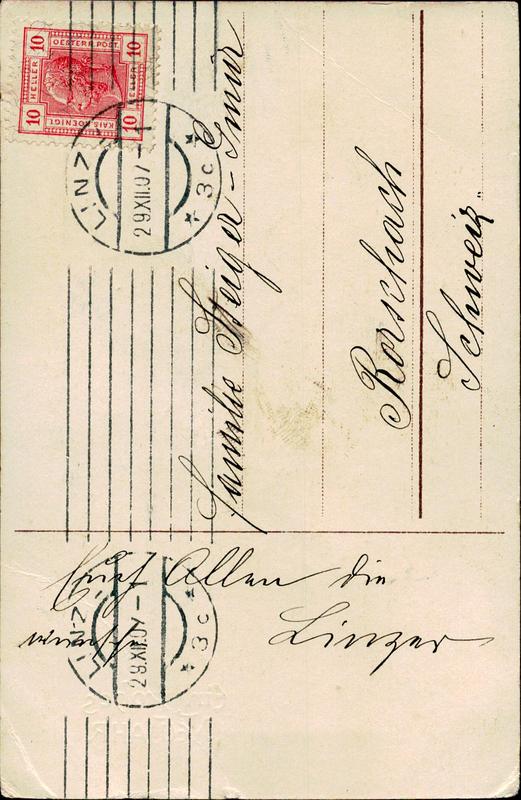 10 10
HELLER HELLER
OESTERR. POST.
KAIS. KOENIGL.
10 10
LINZ
29.XII.07
* 3c *
Familie Steiger-Gmür
Rorschach
Schweiz.
Euch Allen die
Linzer
wünsche
LINZ
29.XII.07
* 3c *